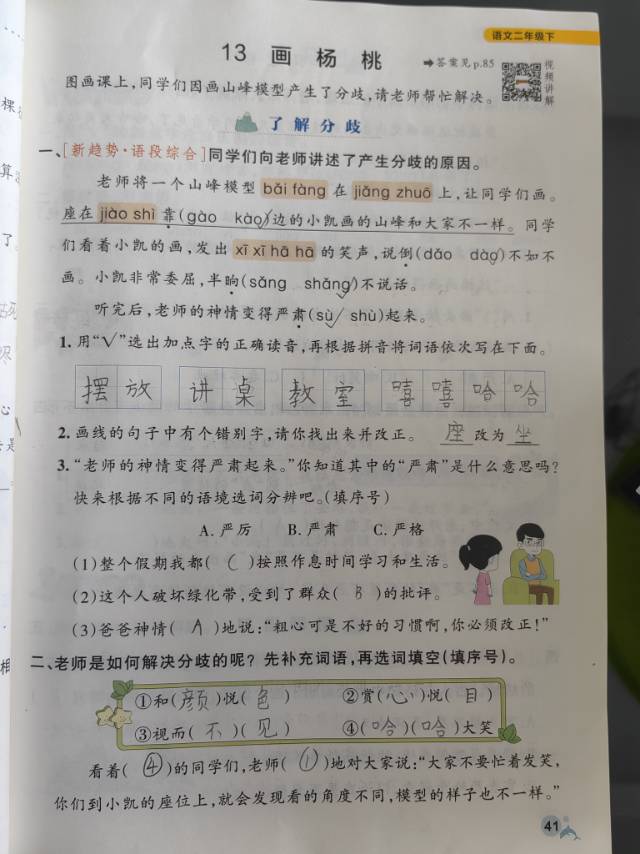 语文二年级下
13 画 杨 桃
➡答案见p.85
视频讲解
图画课上,同学们因画山峰模型产生了分歧,请老师帮忙解决。
了解分歧
一、[新趋势·语段综合]同学们向老师讲述了产生分歧的原因。
老师将一个山峰模型 bǎi fàng 在 jiǎng zhuō 上,让同学们画。
座在 jiào shì 靠(gào kào√)边的小凯画的山峰和大家不一样。同学
们看着小凯的画,发出 xī xī hā hā 的笑声,说倒(dǎo dào√)不如不
画。小凯非常委屈,半晌(sǎng shǎng√)不说话。
听完后,老师的神情变得严肃(sù√ shù)起来。
1. 用“√”选出加点字的正确读音,再根据拼音将词语依次写在下面。
摆放 讲桌 教室 嘻嘻哈哈
2. 画线的句子中有个错别字,请你找出来并改正。 座 改为 坐
3. “老师的神情变得严肃起来。”你知道其中的“严肃”是什么意思吗?
快来根据不同的语境选词分辨吧。(填序号)
A. 严厉 B. 严肃 C. 严格
(1)整个假期我都( C )按照作息时间学习和生活。
(2)这个人破坏绿化带,受到了群众( B )的批评。
(3)爸爸神情( A )地说:“粗心可是不好的习惯啊,你必须改正!”
二、老师是如何解决分歧的呢? 先补充词语,再选词填空(填序号)。
①和(颜)悦(色) ②赏(心)悦(目)
③视而(不)(见) ④(哈)(哈)大笑
看着( ④ )的同学们,老师( ① )地对大家说:“大家不要忙着发笑,
你们到小凯的座位上,就会发现看的角度不同,模型的样子也不一样。”
41